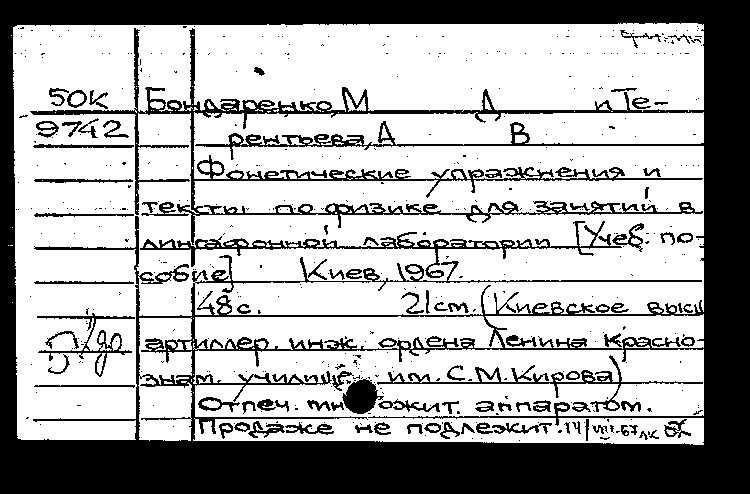 50К Бондаренко, М Д и Те-
9742 рентьева, А В
Фонетические упражнения и
тексты по физике для занятий в
лингафонной лаборатории [Учеб. по-
собие] Киев, 1967.
48 с. 21 см. (Киевское высш
артиллер. инж. ордена Ленина красно-
знам. училище им. С.М. Кирова)
Отпеч. множит. аппаратом.
Продаже не подлежит. 14/VIII-67